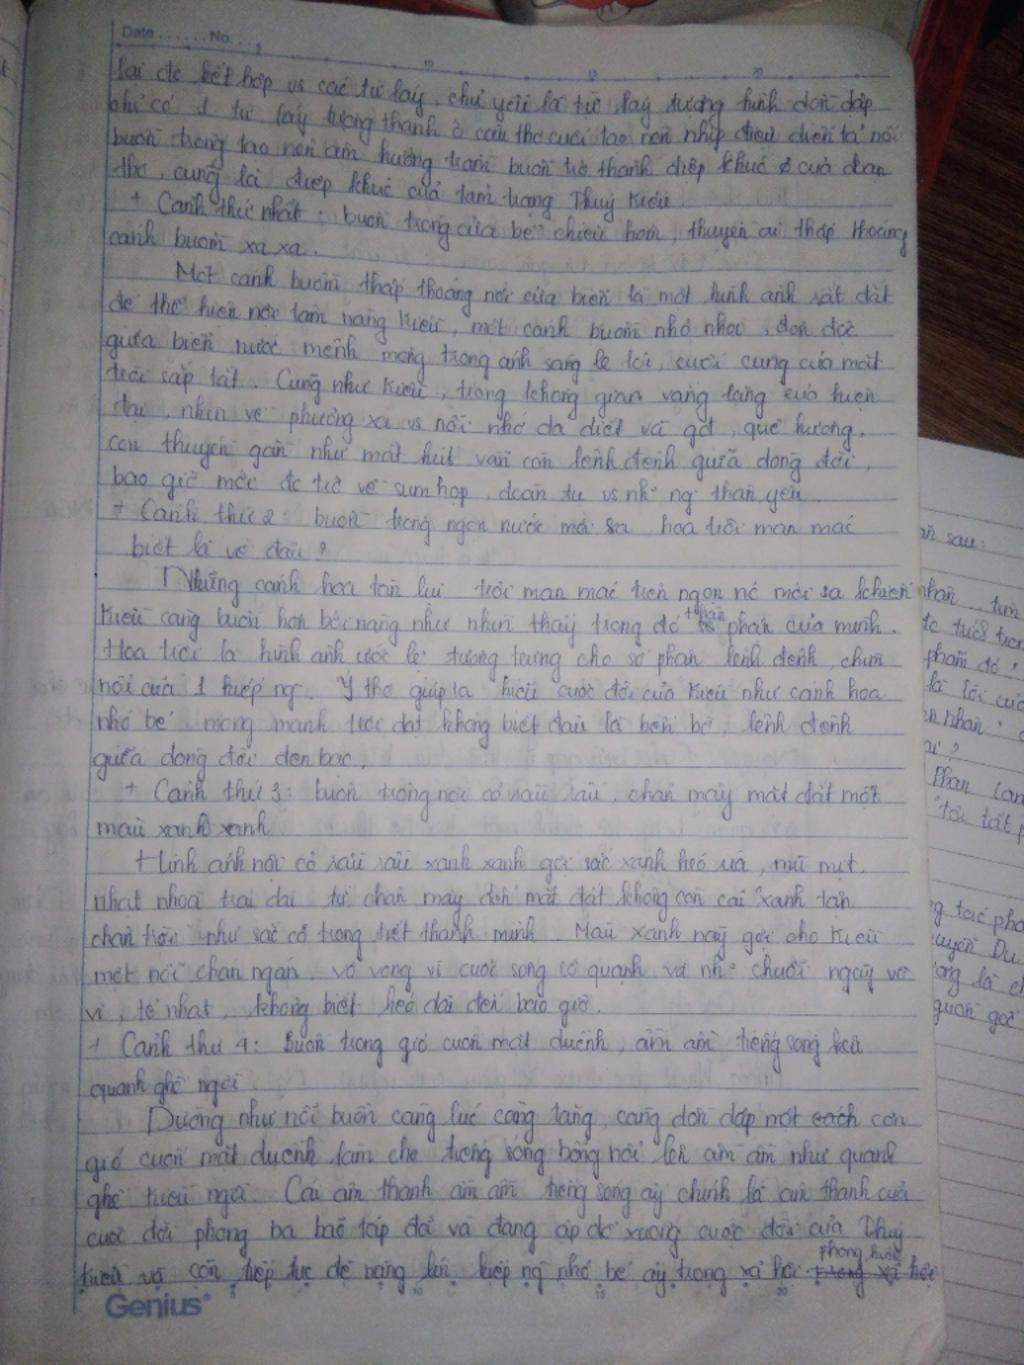 Date ...... No. ..
lại để kết hợp vs các từ láy, chủ yếu là từ láy tượng hình dồn dập
chỉ có 1 từ láy tượng thanh ở câu thơ cuối tạo nên nhịp điệu diễn tả nỗi
buồn trong tạo nên âm hưởng trầm buồn trở thành điệp khúc của đoạn
thơ, cũng là điệp khúc của tâm trạng Thuý Kiều.
+ Cảnh thứ nhất : buồn trông cửa bể chiều hôm, thuyền ai thấp thoáng
cánh buồm xa xa.
Một cánh buồm thấp thoáng nơi cửa biển là một hình ảnh rất đắt
để thể hiện nội tâm nàng Kiều, một cánh buồm nhỏ nhoi, đơn độc
giữa biển nước mênh mông trong ánh sáng le lói, cuối cùng của mặt
trời sắp tắt. Cũng như Kiều, trong không gian vắng lặng của hiện
tại, nhìn về phương xa vs nỗi nhớ da diết về gđ, quê hương.
con thuyền gần như mất hút vẫn còn lênh đênh giữa dòng đời,
bao giờ mới đc trở về sum họp, đoàn tụ vs những ng thân yêu.
+ Cảnh thứ 2 buồn trông ngọn nước mới sa, hoa trôi man mác
biết là về đâu ?
Những cánh hoa tàn lụi trôi man mác trên ngọn nc mới sa khiến
Kiều càng buồn hơn bởi nàng như nhìn thấy trong đó thân phận của mình.
Hoa trôi là hình ảnh ước lệ tượng trưng cho số phận lênh đênh, chìm
nổi của 1 kiếp ng. Ý thơ giúp ta hiểu cuộc đời của Kiều như cánh hoa
nhỏ bé mong manh trôi dạt không biết đâu là bến bờ, lênh đênh
giữa dòng đời đen bạc.
+ Cảnh thứ 3: buồn trông nội cỏ rầu rầu, chân mây mặt đất một
màu xanh xanh
Hình ảnh nội cỏ rầu rầu xanh xanh gợi sắc xanh héo úa, mù mịt
nhạt nhoà trải dài từ chân mây đến mặt đất không còn cái "xanh tận
chân trời" như sắc cỏ trong tiết thanh minh. Màu xanh này gợi cho Kiều
một nỗi chán ngán, vô vọng vì cuộc sống cô quạnh và những chuỗi ngày vô
vị, tẻ nhạt, không biết kéo dài đến bao giờ.
+ Cảnh thứ 4: Buồn trông gió cuốn mặt duềnh, ầm ầm tiếng sóng kêu
quanh ghế ngồi
Dường như nỗi buồn càng lúc càng tăng, càng dồn dập một cách cơn
gió cuốn mặt duềnh làm cho tiếng sóng bỗng nổi lên ầm ầm như quanh
ghế Kiều ngồi. Cái âm thanh ầm ầm tiếng sóng ấy chính là âm thanh của
cuộc đời phong ba bão táp đã và đang ập đổ xuống cuộc đời của Thuý
Kiều và còn tiếp tục đè nặng lên kiếp ng nhỏ bé ấy trong xã hội phong kiến
Genius